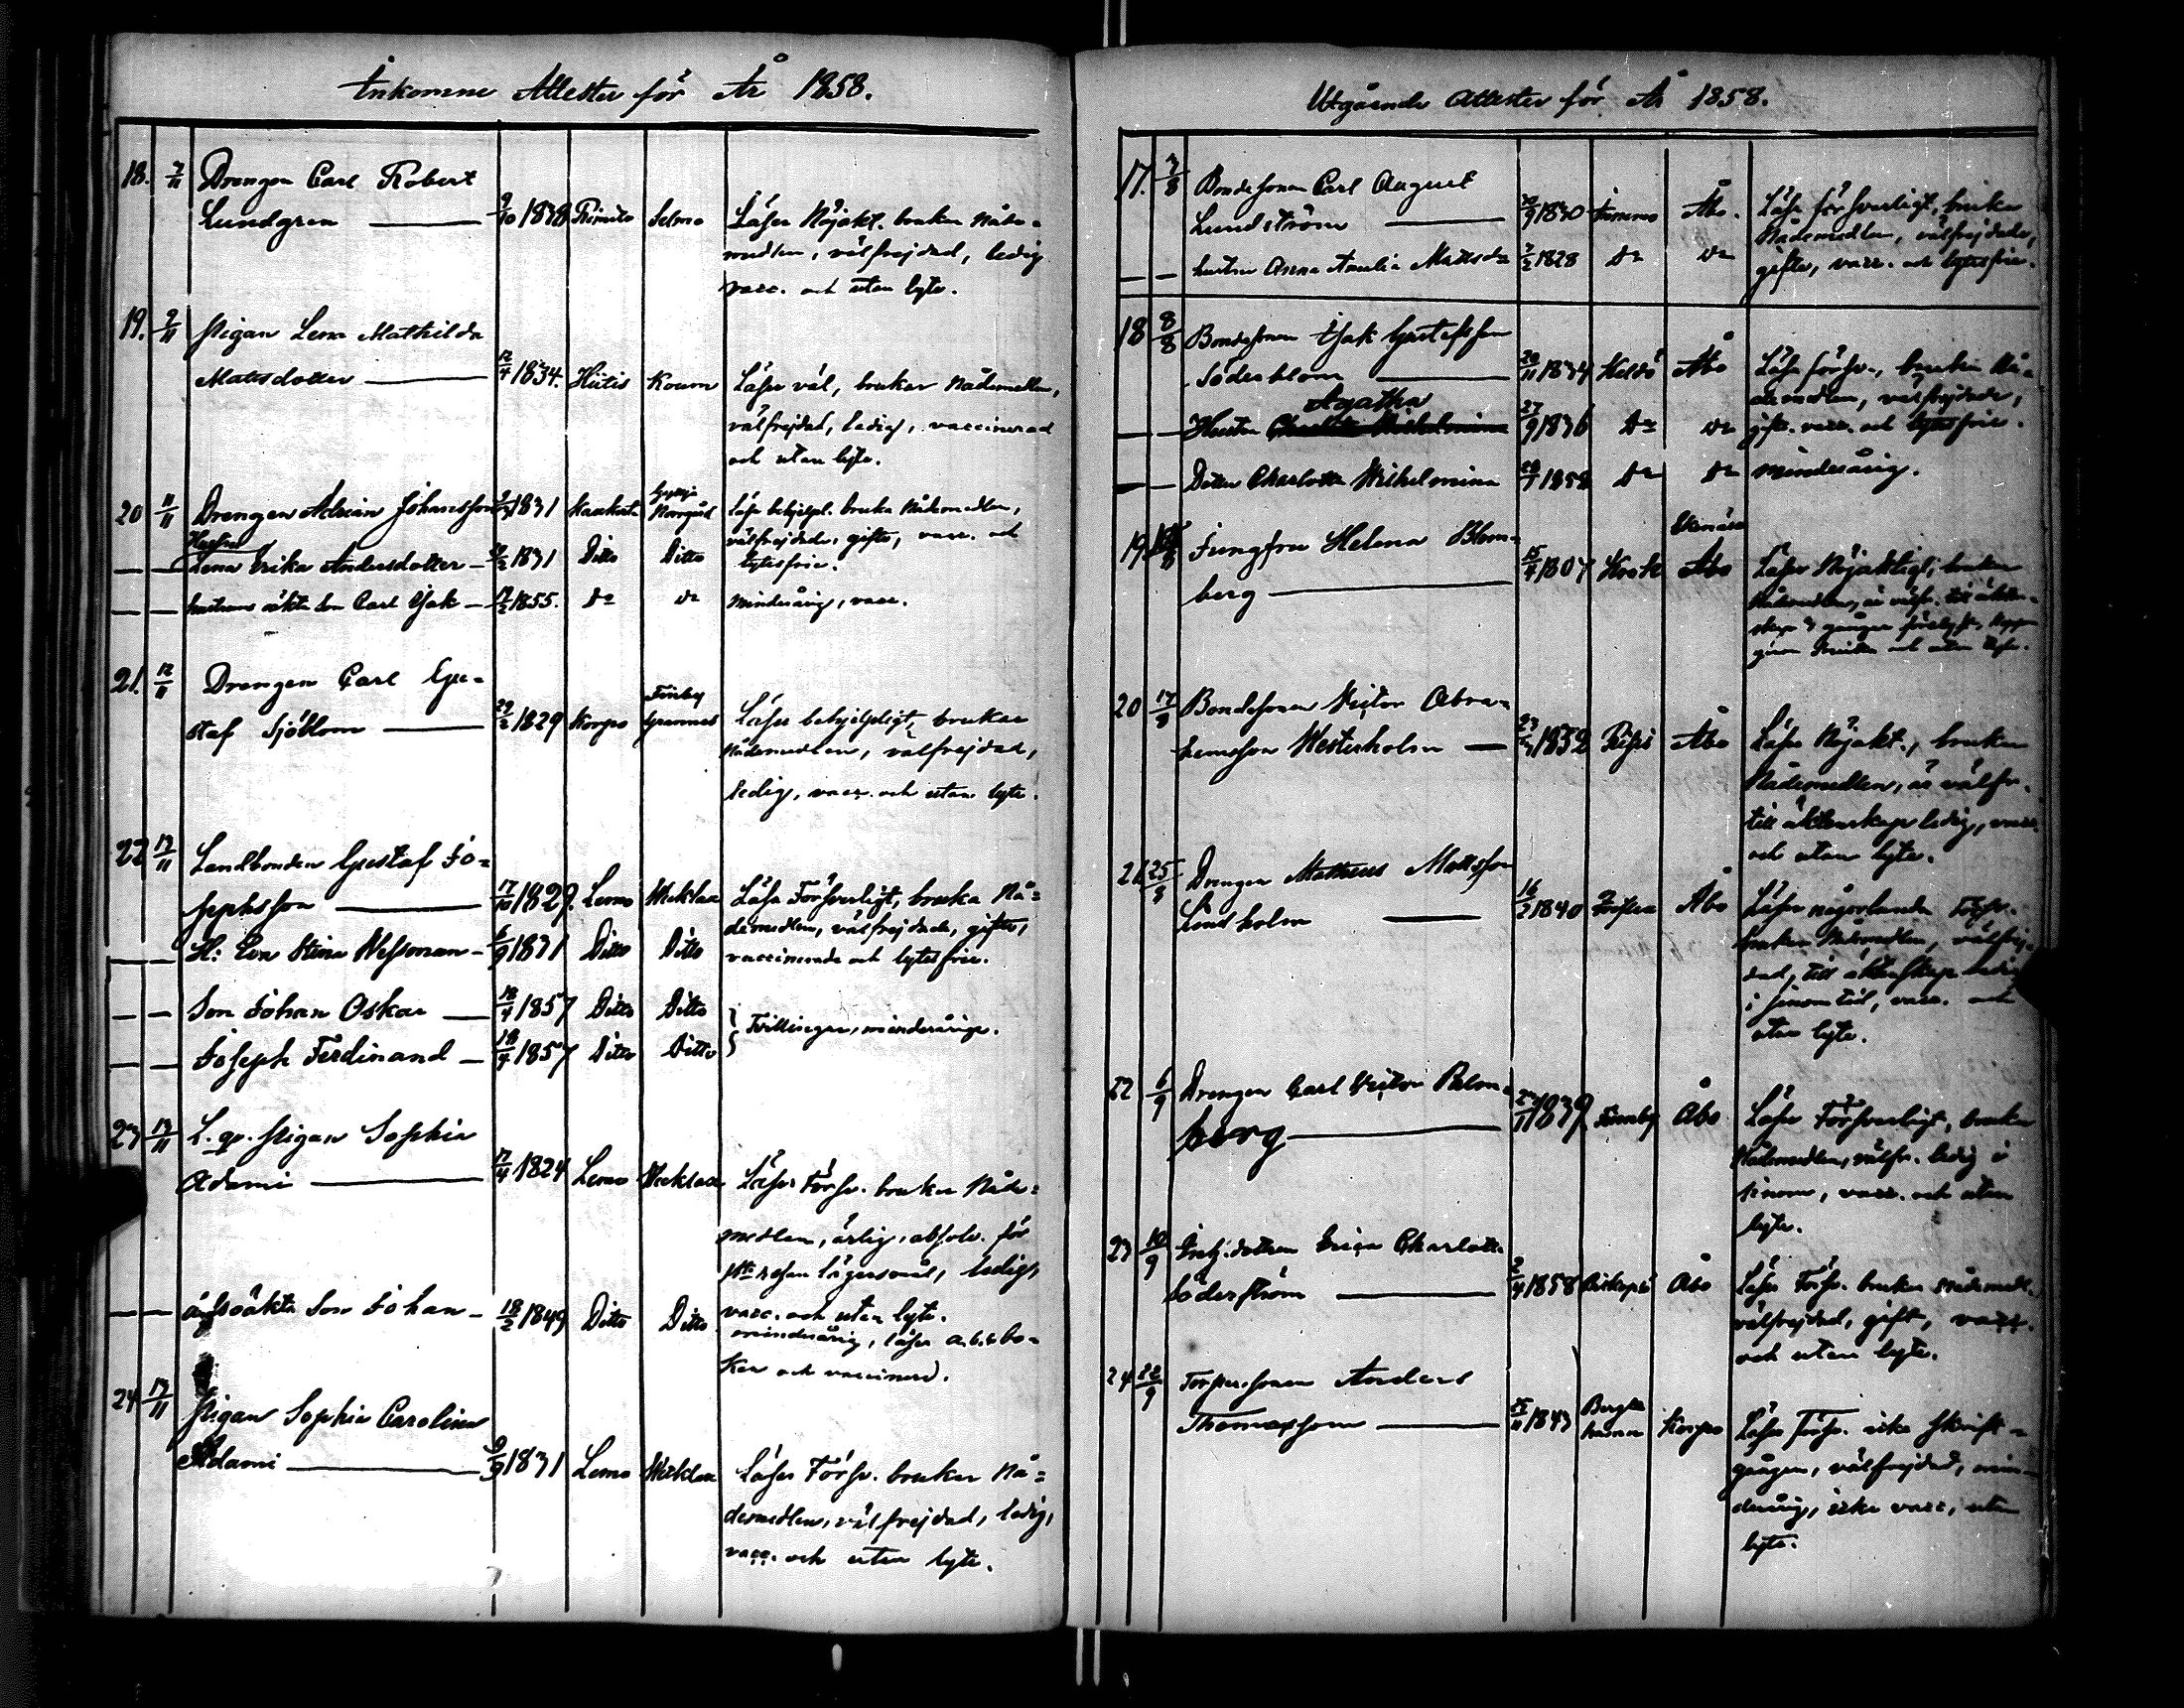 Inkomne Attester för År 1858.
18. 7/11 Drengen Carl Robert
Lundgren 9/10 1838 Rimito Selmo Läser Nöjakt. brukar Nåde-
medlen, välfrejdad, ledig
vacc. och utan lyte.
19. 9/11 Pigan Lena Mathilda
Matsdotter 12/4 1834. Hitis Koum Läser väl, brukar Nådemedlen,
välfrejdad, ledig, vaccinerad
och utan lyte.
20 11/11 Drengen Adrian Johansson 1831 Norrgård Läsa behjelpl. bruka Nådemedlen,
Hustru
välfrejdade, gifte, vacc. och
Lena Erika Andersdotter 1831 Ditto Ditto lytesfrie.
hustruns oäkta son Carl Isak 1855. Do Do Minderårig, vacc.
21. 12/11 Drengen Carl Gu-
Finby
staf Sjöblom 1829 Korpo Läser behjelpligt, brukar
Nådemedlen, välfrejdad,
ledig, vacc. och utan lyte.
22 13/11 Landbonden Gustaf Jo-
sephsson 17/10 1829. Lemo Wicklax Läsa Försvarligt, bruka Nå-
demedlen, välfrejdade, gifte,
H: Eva Stina Wessman 6/9 1831 Ditto Ditto vaccinerade och lytesfrie.
Son Johan Oskar 18/4 1857 Ditto Ditto
Tvillingar, minderårige.
Joseph Ferdinand 18/4 1857 Ditto Ditto
23 13/11 L. qv. Pigan Sophia
Adami 17/4 1824 Lemo Wicklax Läser Försv. brukar Nåde-
medlen, ärlig, absolv. för
resan lägersmål, ledig,
vacc. och utan lyte.
oäkta Son Johan 18/2 1849 Ditto Ditto
minderårig, läser a.b.c. bo-
ken och vaccinerad.
24 13/11 Pigan Sophia Carolina
Adami 9/9 1831 Lemo Wicklax Läser Försv. brukar Nå-
demedlen, välfrejdad, ledig,
vacc. och utan lyte.
Utgående Attester för År 1858.
17. 7/8 Bondesonen Carl August
Lundström 1830 Åbo. Läsa försvarligt, bruka
Nådemedlen, välfrejdade,
hustru Anna Amalia Matsdr 1828 Do Do gifte, vacc. och lytesfrie.
18 8/8 Bondesonen Isak Gustafsson
Söderblom 20/11 1834 Åbo Läsa försv., bruka Nå-
demedlen, välfrejdade,
Agatha
Hustru 27/9 1836 Do Do gifte. vacc. och lytesfrie.
Dotter Charlotta Wilhelmina 1858 Do Do minderårig.
Ekenäs
19. Jungfru Helena Blom-
berg 15/4 1807 Åbo Läser Nöjaktligt, brukar
Nådemedlen, är välfr. till äkten-
skap 3 gånger
och utan lyte.
20 17/8 Bondesonen Victor Abra-
hamsson Westerholm 1832 Åbo Läser Nöjakt., brukar
Nådemedlen, är välfr.
till äktenskap ledig, vacc.
och utan lyte.
21 25/8 Drengen Mattheus Mattsson
Lindholm 16/2 1840 Åbo Läser någorlunda Försv.
brukar Nådemedlen, välfrej-
dad, till äktenskap ledig
i sinom tid, vacc. och
utan lyte.
22 6/9 Drengen Carl Victor Palm-
berg 1839 Finnby Åbo Läser Försvarligt, brukar
Nådemedlen, välfr. ledig i
sinom, vacc. och utan
lyte.
23 10/9 Erica Charlotta
Söderström 1858 Åbo Läser Försv. brukar nådemedl.
välfrejdad, gift, vacc.
och utan lyte.
24 22/9 Torparsonen Anders
Thomasson 1843 Berghamn Korpo Läser Försv. icke skrift-
gången, välfrejdad, min-
derårig, icke vacc, utan
lyte.